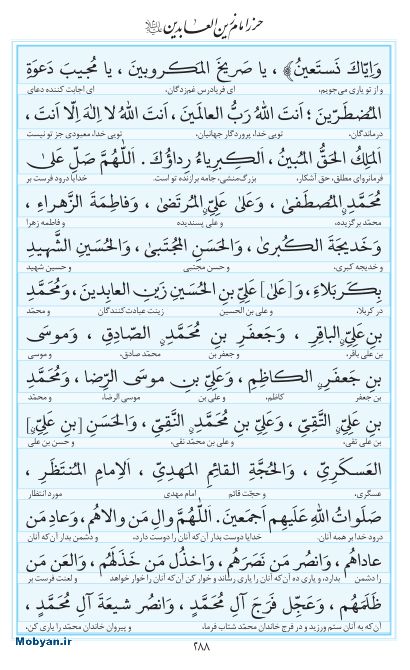 حرز امام زین العابدین علیه السلام
وَاِیّاکَ نَستَعینُ﴾ ، یا صَریخَ المَکروبینَ ، یا مُجیبَ دَعوَةِ
و از تو یاری می‌جویم، ای فریادرس غم‌زدگان، ای اجابت کننده دعای
المُضطَرّینَ ؛ اَنتَ اللهُ رَبُّ العالَمینَ، اَنتَ اللهُ لا اِلهَ اِلّا اَنتَ ،
درماندگان، تویی خدا، پروردگار جهانیان، تویی خدا، معبودی جز تو نیست
المَلِکُ الحَقُّ المُبینُ ، اَلکِبریاءُ رِداؤُکَ . اَللّهُمَّ صَلِّ عَلی
فرمانروای مطلق، حق آشکار، بزرگ‌منشی، جامه برازنده تو است. خدایا درود فرست بر
مُحَمَّدٍ المُصطَفی ، وَعَلی عَلِیٍّ المُرتَضی ، وَفاطِمَةَ الزَّهراءِ ،
محمّد برگزیده، و علی پسندیده و فاطمه زهرا
وَخَدیجَةَ الکُبری ، وَالحَسَنِ المُجتَبی ، وَالحُسَینِ الشَّهیدِ
و خدیجه کبری، و حسن مجتبی و حسین شهید
بِکَربَلاءَ ، وَ [عَلی] عَلِیِّ بنِ الحُسَینِ زَینِ العابِدینَ ، وَمُحَمَّدِ
در کربلا، و علی بن الحسین زینت عبادت‌کنندگان و محمّد
بنِ عَلِیٍّ الباقِرِ ، وَجَعفَرِ بنِ مُحَمَّدٍ الصّادِقِ ، وَموسَی
بن علی باقر، و جعفر بن محمّد صادق، و موسی
بنِ جَعفَرٍ الکاظِمِ ، وَعَلِیِّ بنِ موسَی الرِّضا ، وَمُحَمَّدِ
بن جعفر کاظم، و علی بن موسی الرضا، و محمّد
بنِ عَلِیٍّ التَّقِیِّ ، وَعَلِیِّ بنِ مُحَمَّدٍ النَّقِیِّ ، وَالحَسَنِ [بنِ عَلِیٍّ]
بن علی تقی، و علی بن محمّد نقی، و حسن بن علی
العَسکَرِیِّ ، وَالحُجَّةِ القائِمِ المَهدِیِّ ، الاِمامِ المُنتَظَرِ ،
عسگری، و حجّت قائم امام مهدی مورد انتظار
صَلَواتُ اللهِ عَلَیهِم اَجمَعینَ. اَللّهُمَّ والِ مَن والاهُم ، وَعادِ مَن
درود خدا بر همه آنان. خدایا دوست بدار آن‌که آنان را دوست دارد، و دشمن بدار آن‌که آنان
عاداهُم ، وَانصُر مَن نَصَرَهُم ، وَاخذُل مَن خَذَلَهُم ، وَالعَن مَن
را دشمن بدارد، و یاری ده آن‌که آنان را یاری رساند و خوار کن آن‌که آنان را خوار خواهد و لعنت فرست بر
ظَلَمَهُم ، وَعَجِّل فَرَجَ آلِ مُحَمَّدٍ ، وَانصُر شیعَةَ آلِ مُحَمَّدٍ ،
آن‌که به آنان ستم ورزید و در فرج خاندان محمّد شتاب فرما، و پیروان خاندان محمّد را یاری کن،
۲۸۸
Mobyan.ir